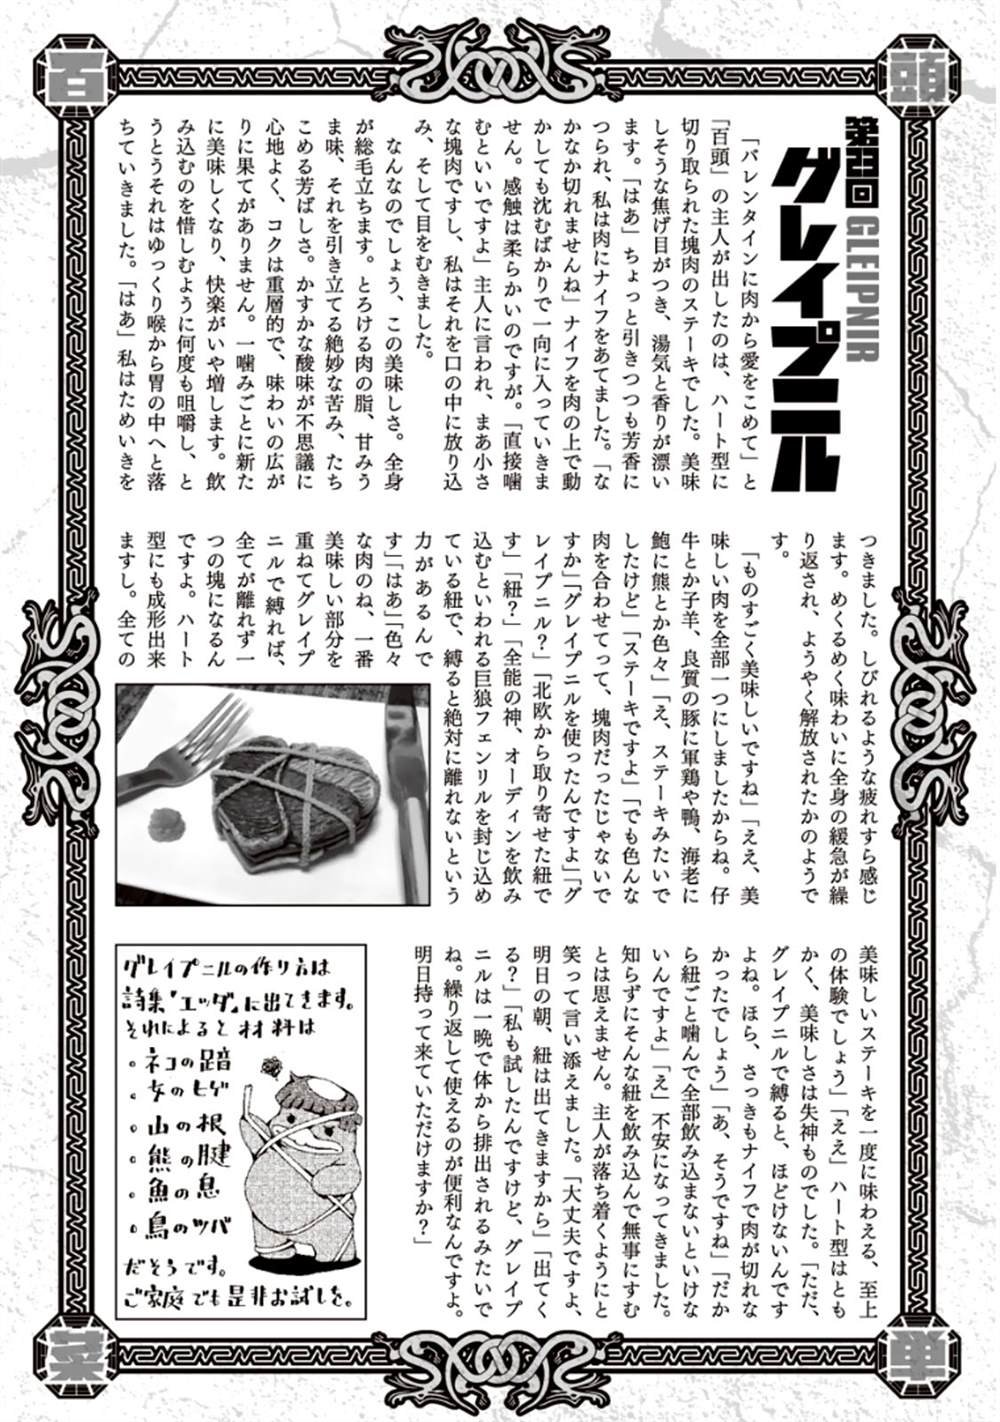 百
頭
菜
単
GLEIPNIR
グレイプニル
「バレンタインに肉から愛をこめて」と
「百頭」の主人が出したのは、ハート型に
切り取られた塊肉のステーキでした。美味
しそうな焦げ目がつき、湯気と香りが漂い
ます。「はあ」ちょっと引きつつも芳香に
つられ、私は肉にナイフをあてました。「な
かなか切れませんね」ナイフを肉の上で動
かしても沈むばかりで一向に入っていきま
せん。感触は柔らかいのですが。「直接噛
むといいですよ」主人に言われ、まあ小さ
な塊肉ですし、私はそれを口の中に放り込
み、そして目をむきました。
なんなのでしょう、この美味しさ。全身
が総毛立ちます。とろける肉の脂、甘みう
ま味、それを引き立てる絶妙な苦み、たち
こめる芳ばしさ。かすかな酸味が不思議に
心地よく、コクは重層的で、味わいの広が
りに果てがありません。一噛みごとに新た
に美味しくなり、快楽がいや増します。飲
み込むのを惜しむように何度も咀嚼し、と
うとうそれはゆっくり喉から胃の中へと落
ちていきました。「はあ」私はためいきを
つきました。しびれるような疲れすら感じ
ます。めくるめく味わいに全身の緩急が繰
り返され、ようやく解放されたかのようで
す。
「ものすごく美味しいですね」「ええ、美
味しい肉を全部一つにしましたからね。仔
牛とか子羊、良質の豚に軍鶏や鴨、海老に
鮑に熊とか色々」「え、ステーキみたいで
したけど」「ステーキですよ」「でも色んな
肉を合わせてって、塊肉だったじゃないで
すか」「グレイプニルを使ったんですよ」「グ
レイプニル？」「北欧から取り寄せた紐で
す」「紐？」「全能の神、オーディンを飲み
込むといわれる巨狼フェンリルを封じ込め
ている紐で、縛ると絶対に離れないという
力があるんで
す」「はあ」「色々
な肉のね、一番
美味しい部分を
重ねてグレイプ
ニルで縛れば、
全てが離れず一
つの塊になるん
ですよ。ハート
型にも成形出来
ますし。全ての
美味しいステーキを一度に味わえる、至上
の体験でしょう」「ええ」ハート型はとも
かく、美味しさは失神ものでした。「ただ、
グレイプニルで縛ると、ほどけないんです
よね。ほら、さっきもナイフで肉が切れな
かったでしょう」「あ、そうですね」「だか
ら紐ごと噛んで全部飲み込まないといけな
いんですよ」「え」不安になってきました。
知らずにそんな紐を飲み込んで無事にすむ
とは思えません。主人が落ち着くようにと
笑って言い添えました。「大丈夫ですよ、
明日の朝、紐は出てきますから」「出てく
る？」「私も試したんですけど、グレイプ
ニルは一晩で体から排出されるみたいで
ね。繰り返して使えるのが便利なんですよ。
明日持って来ていただけますか？」
グレイプニルの作り方は
詩集「エッダ」に出てきます。
それによると材料は
。ネコの跫音
。女のヒゲ
。山の根
。熊の腱
。魚の息
。鳥のツバ
だそうです。
ご家庭でも是非お試しを。